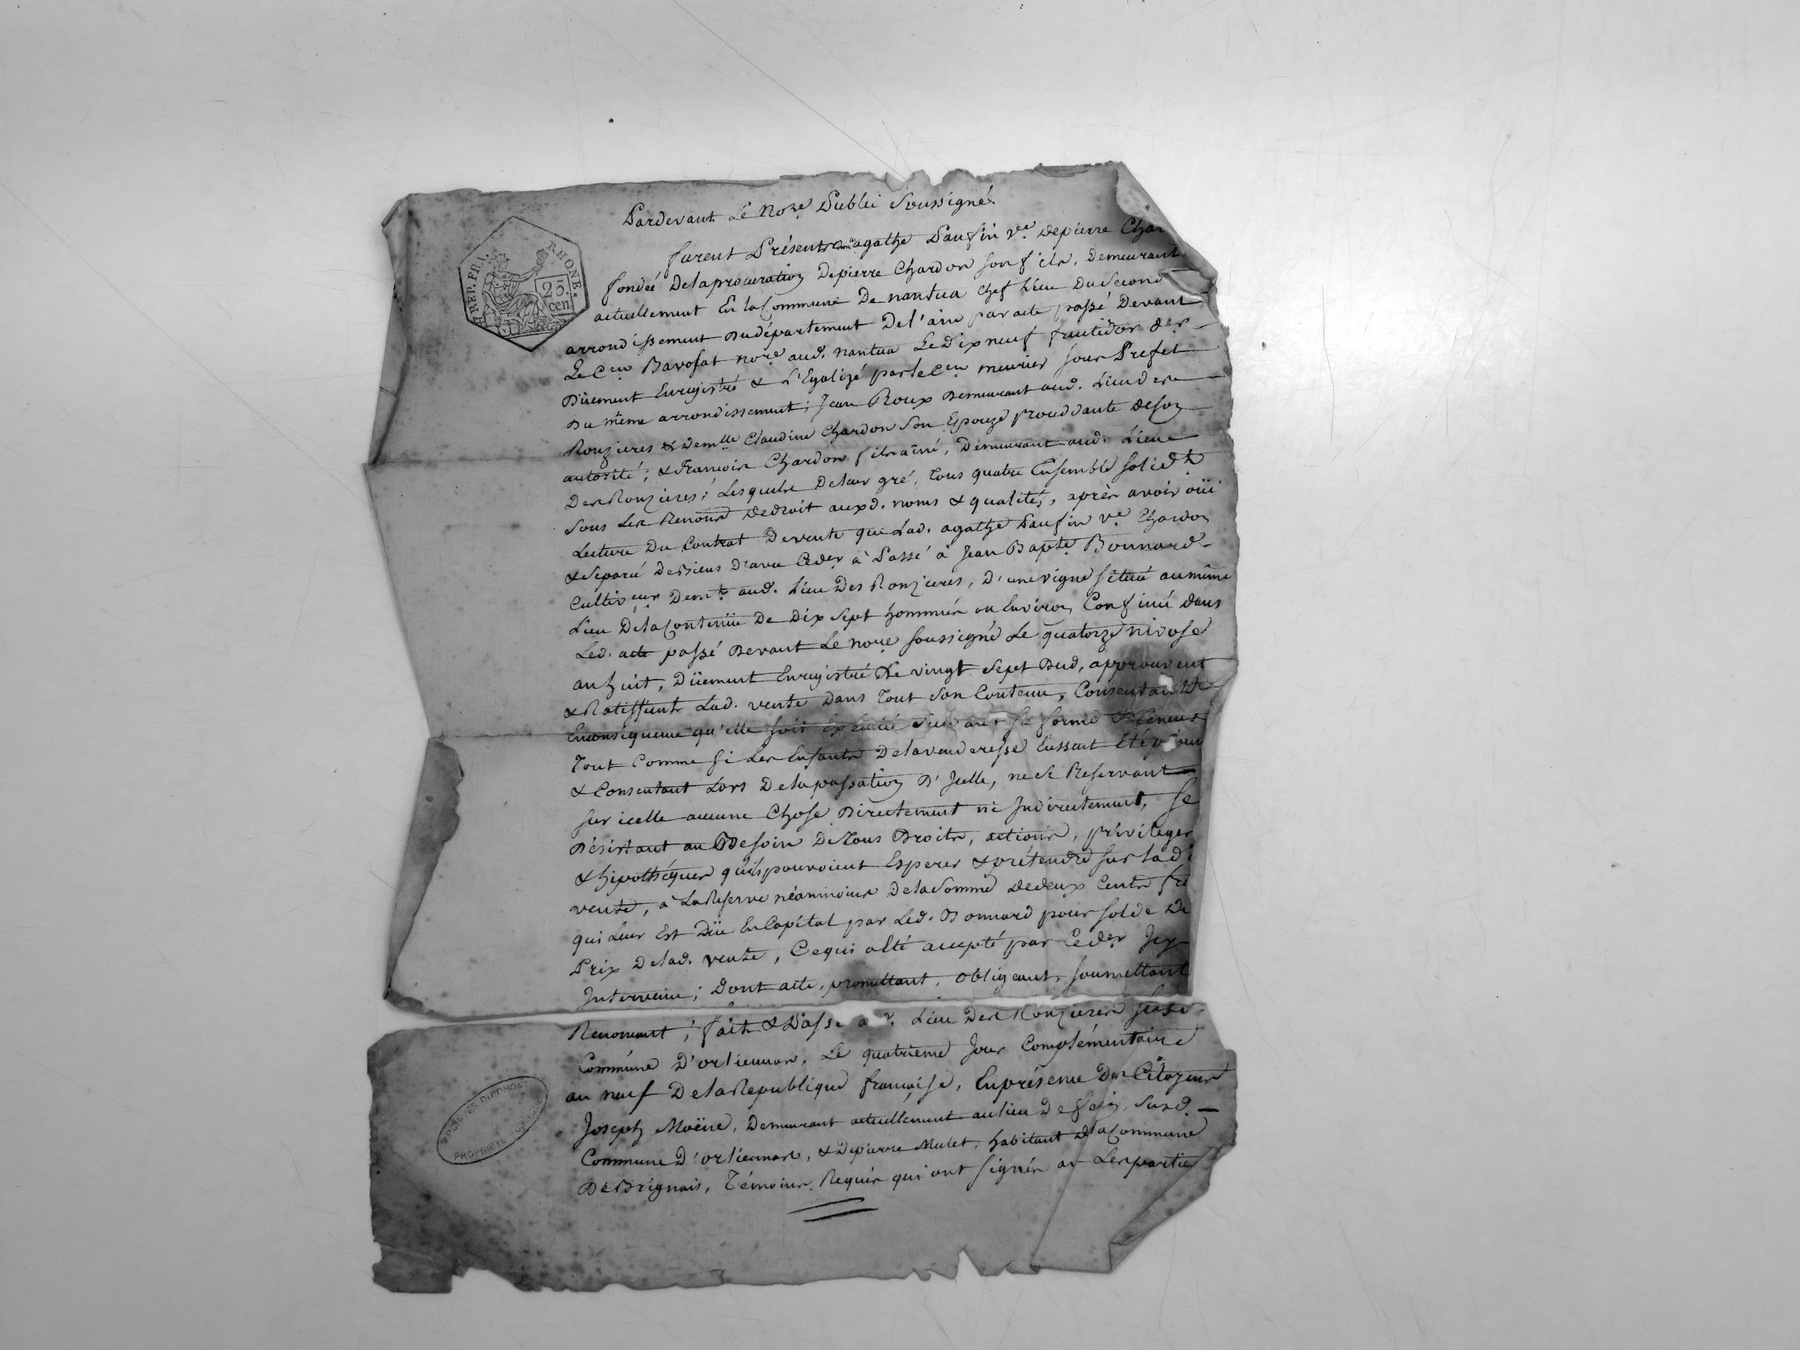 Pardevant Le No.re Public Soussigné
REP. FRA. RHONE.
25 cen
furent Présents agathe Paufin v.e de pierre Char
fondée De la procuration De pierre Chardon son fils, demeurant
actuellement En la Commune De nantua chef Lieu Du Second
arrondissement Du département De l'ain par acte passé Devant
Le C.en Bavosat no.re aud. nantua Le Dix neuf fructidor der
Düement Enregistré & Légalizé par le C.en meunier sous Prefet
Du même arrondissement; Jean Roux Demeurant aud. Lieu des
Ronzieres & Dem.lle Claudine Chardon Son Epouze procédante de son
autorité; & François Chardon fils aîné, Demeurant aud. Lieu
Des Ronzieres; Lesquels De leur gré, Tous quatre Ensemble solid.t
Sous Les Renonc.d De droit auxd. noms & qualités, après avoir oüi
Lecture Du Contrat De vente que Lad. agathe Paufin v.e Chardon
& Séparé De Biens D'avec Ced.er à Passé à Jean Bapte. Bonnard
Cultiv.eur Dem.t aud. Lieu Des Ronzieres, D'une vigne située au même
Lieu De la Contenüe De Dix Sept hommées ou Environ Confinée dans
Led. acte passé Devant Le no.re soussigné Le quatorze nivose
an huit, Düement Enregistré Le vingt Sept Dud, approuvent
& Ratiffient Lad. vente Dans Tout Son Contenu, Consentant
En conséquence qu'elle soit Exécutée Suivant Sa forme & Teneur
Tout Comme si Les Enfants De la venderesse Eussent Eté
& Consentant Lors De la passation D'Icelle, ne se Reservant
sur icelle aucune Chose Directement ni Indirectement, Se
Désistant au Besoin De Tous Droits, actions, privileges
& hipothéques qu'ils pouvoient Esperer & prétendre sur lad.
vente, à La Reserve néanmoins De la Somme De deux Cents fr
qui Leur Est Düe En Capital par Led. Bonnard pour solde De
Prix De lad. vente, Ce qui a été accepté par Ced.er Icy
Intervenu; Dont acte, promettant, obligeant, soumettant
Renonçant; fait & Passé a Lieu Des Ronzieres susd.
Commune D'orlienas, Le quatrieme Jour Complémentaire
an neuf De la République française, En présence Des Citoyens
Joseph Moëne, Demeurant actuellement au lieu De susd.
Commune D'orlienas, & De pierre Mulet, habitant De la Commune
De Brignais, Témoins Requis qui ont signés av Les parties
PROPRIETE